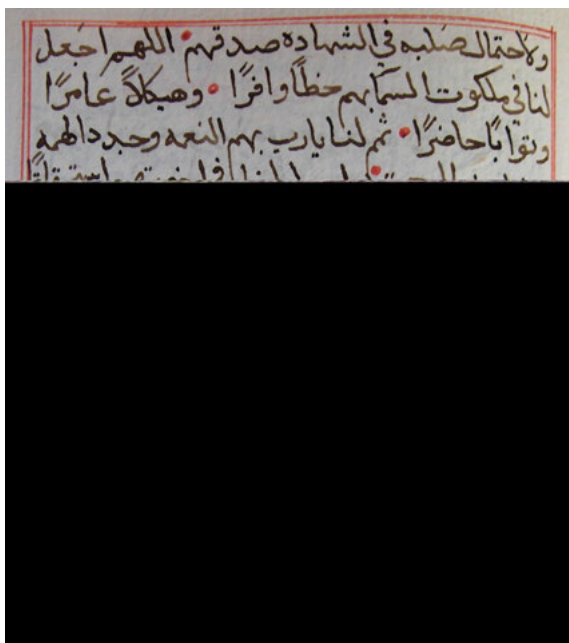 ولاحتمال صلبه في الشهاده صدقهم • اللهم اجعل
لنا في ملكوت السما بهم حظًا وافرًا • وهيكلاً عامرًا
وثوابًا حاضرًا • ثم لنا يارب بهم النعمه وجدد الهمه